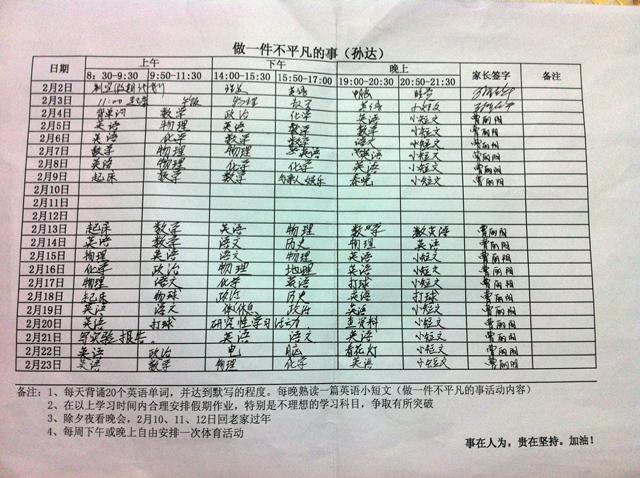 做一件不平凡的事（孙达）
日期 上午 下午 晚上 家长签字 备注
8：30-9:30 9:50-11:30 14:00-15:30 15:50-17:00 19:00-20:30 20:50-21:30
2月2日 制定假期计划 英语
2月3日 11:00 起床 午饭 物理 数学 英语 小短文
2月4日 背单词 数学 政治 化学 英语 小短文 曹丽阳
2月5日 英语 物理 英语 数学 数学 小短文 曹丽阳
2月6日 英语 化学 数学 数学 语文 小短文 曹丽阳
2月7日 数学 物理 物理 英语 英语 小短文 曹丽阳
2月8日 英语 物理 化学 化学 英语 小短文 曹丽阳
2月9日 起床 数学 数学 娱乐 春晚 小短文 曹丽阳
2月10日
2月11日
2月12日
2月13日 起床 数学 英语 物理 数学 英语 曹丽阳
2月14日 英语 数学 语文 历史 物理 英语 曹丽阳
2月15日 物理 英语 语文 物理 英语 小短文 曹丽阳
2月16日 化学 政治 物理 地理 英语 小短文 曹丽阳
2月17日 物理 语文 化学 英语 打球 小短文 曹丽阳
2月18日 起床 物理 政治 历史 英语 打球 曹丽阳
2月19日 英语 语文 休息 政治 英语 小短文 曹丽阳
2月20日 英语 打球 研究性学习活动 查资料 小短文 曹丽阳
2月21日 写实验报告。 英语 语文 英语 小短文 曹丽阳
2月22日 英语 政治 电脑 看花灯 小短文 曹丽阳
2月23日 英语 数学 物理 化学 英语 小短文 曹丽阳
备注：1、每天背诵20个英语单词，并达到默写的程度。每晚熟读一篇英语小短文（做一件不平凡的事活动内容）
2、在以上学习时间内合理安排假期作业，特别是不理想的学习科目，争取有所突破
3、除夕夜看晚会，2月10、11、12日回老家过年
4、每周下午或晚上自由安排一次体育活动
事在人为，贵在坚持。加油！